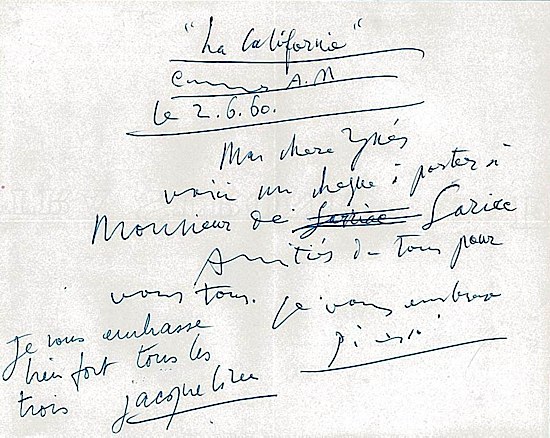 "La Californie"
Cannes A.M
le 2.6.60.
Ma chere Ynés
voici un cheque à porter à
Monsieur de Sariac
Amitiés de tous pour
vous tous. Je vous embrasse
Picasso
Je vous embrasse
bien fort tous les
trois Jacqueline